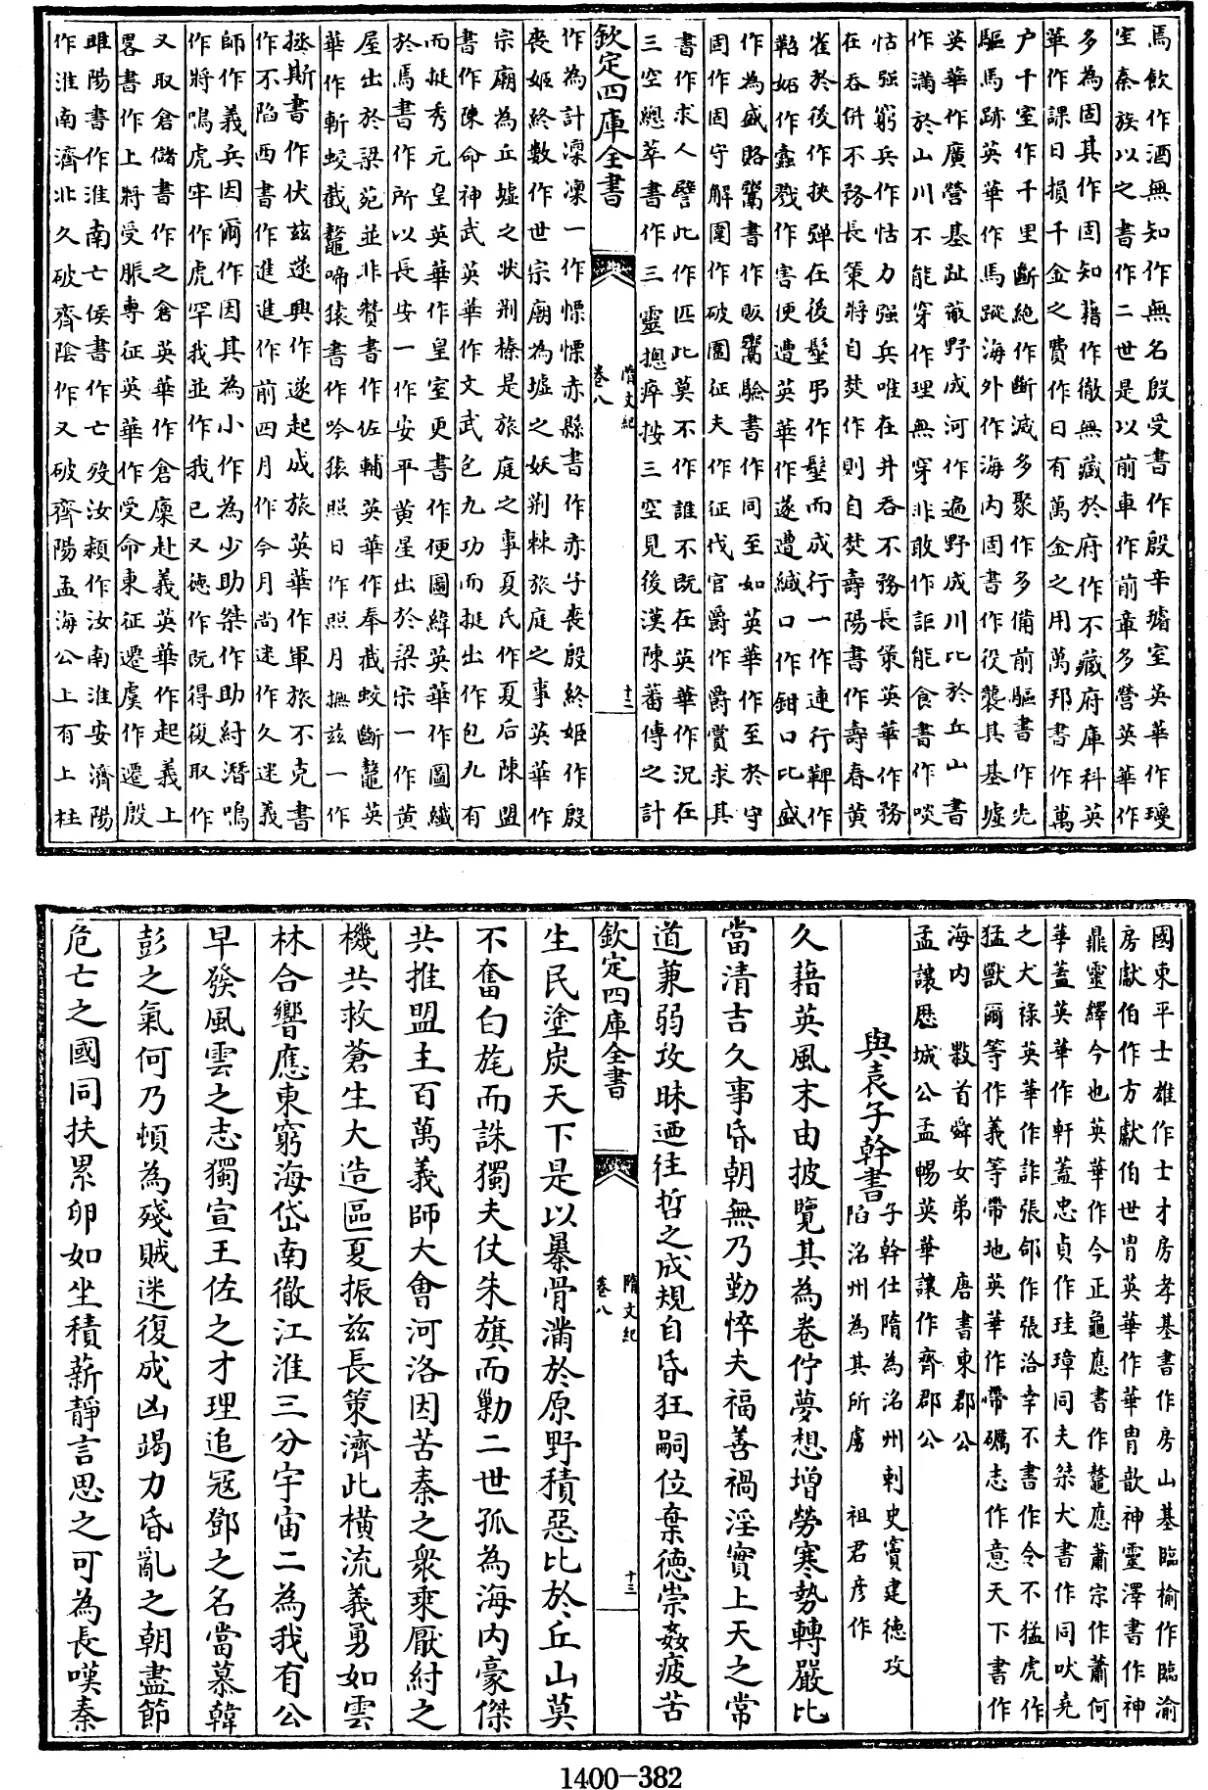 馬飲作酒無知作無名殷受書作殷辛璿室英華作瓊
室秦族以之書作二世是以前車作前章多營英華作
多為固其作固知藉作徹無藏於府作不藏府庫科英
華作課日損千金之費作日有萬金之用萬邦書作萬
户千室作千里斷絶作斷滅多聚作多備前驅書作先
驅馬跡英華作馬蹤海外作海内固書作役襲其基墟
英華作廣營基趾蔽野成河作遍野成川比於丘山書
作滿於山川不能穿作理無穿非敢作詎能食書作啖
怙强窮兵作怙力强兵唯在井吞不務長策英華作務
在吞併不務長策將自焚作則自焚壽陽書作壽春黄
雀於後作挾彈在後髽弔作髽而成行一作連行鞞作
鞈妬作蠧戮作害便遭英華作遂遭緘口作鉗口比盛
作為盛賂鬻書作販鬻驗書作同至如英華作至於守
固作固守解圍作破圍征夫作征伐官爵作爵賞求其
書作求人譬此作匹此莫不作誰不既在英華作況在
三空總萃書作三靈摠瘁按三空見後漢陳蕃傳之計
欽定四庫全書
隋文紀
卷八
十二
作為計凜凜一作慄慄赤縣書作赤子喪殷終姬作殷
喪姬終數作世宗廟為墟之妖荆棘旅庭之事英華作
宗廟為丘墟之狀荆榛是旅庭之事夏氏作夏后陳盟
書作陳命神武英華作文武乞九功而挺出作包九有
而挺秀元皇英華作皇室更書作便圖緯英華作圖纖
於馬書作所以長安一作安平黄星出於梁宋一作黄
屋出於梁苑並非贊書作佐輔英華作奉裁蛟斷鼇英
華作斬蛟截鼇啼猿書作吟猿照日作照月撫兹一作
拯斯書作伏兹遂興作遂起成旅英華作軍旅不克書
作不陷西書作進進作前四月作今月尚迷作久迷義
師作義兵因爾作因其為小作為少助桀作助紂潛鳴
作將鳴虎牢作虎罕我並作我已又徳作阮得復取作
又取倉儲書作之倉英華作倉廩赴義英華作起義上
畧書作上將受脤專征英華作受命東征遷虞作遷殷
雎陽書作淮南亡侯書作亡殁汝潁作汝南淮安濟陽
作淮南濟北久破齊陰作又破齊陽孟海公上有上柱
國東平士雄作士才房孝基書作房山基臨榆作臨渝
房獻伯作方獻伯世胄英華作華胄歆神靈澤書作神
鼎靈繹今也英華作今正龜應書作鼇應蕭宗作蕭何
華蓋英華作軒蓋忠貞作珪璋同夫桀犬書作同吠堯
之犬祿英華作詐張郃作張洽幸不書作令不猛虎作
猛獸爾等作義等帶地英華作帶礪志作意天下書作
海内 數首舜女弟 唐書東郡公
孟讓厯城公孟暢英華讓作齊郡公
與袁子幹書
子幹仕隋為洺州刺史竇建徳攻
陷洺州為其所虜 祖君彦作
久藉英風末由披覽其為卷佇夢想增勞寒勢轉嚴比
當清吉久事昏朝無乃勤悴夫福善禍淫實上天之常
道兼弱攻昧迺往哲之成規自昏狂嗣位棄德崇姦疲苦
欽定四庫全書
隋文紀
卷八
十三
生民塗炭天下是以暴骨滿於原野積惡比於丘山莫
不奮白旄而誅獨夫仗朱旗而勦二世孤為海内豪傑
共推盟主百萬義師大會河洛因苦秦之衆乗厭紂之
機共救蒼生大造區夏振兹長策濟此橫流義勇如雲
林合響應東窮海岱南徹江淮三分宇宙二為我有公
早發風雲之志獨宣王佐之才理追冦鄧之名當慕韓
彭之氣何乃頓為殘賊迷復成凶竭力昏亂之朝盡節
危亡之國同扶累卵如坐積薪靜言思之可為長嘆秦
1400-382